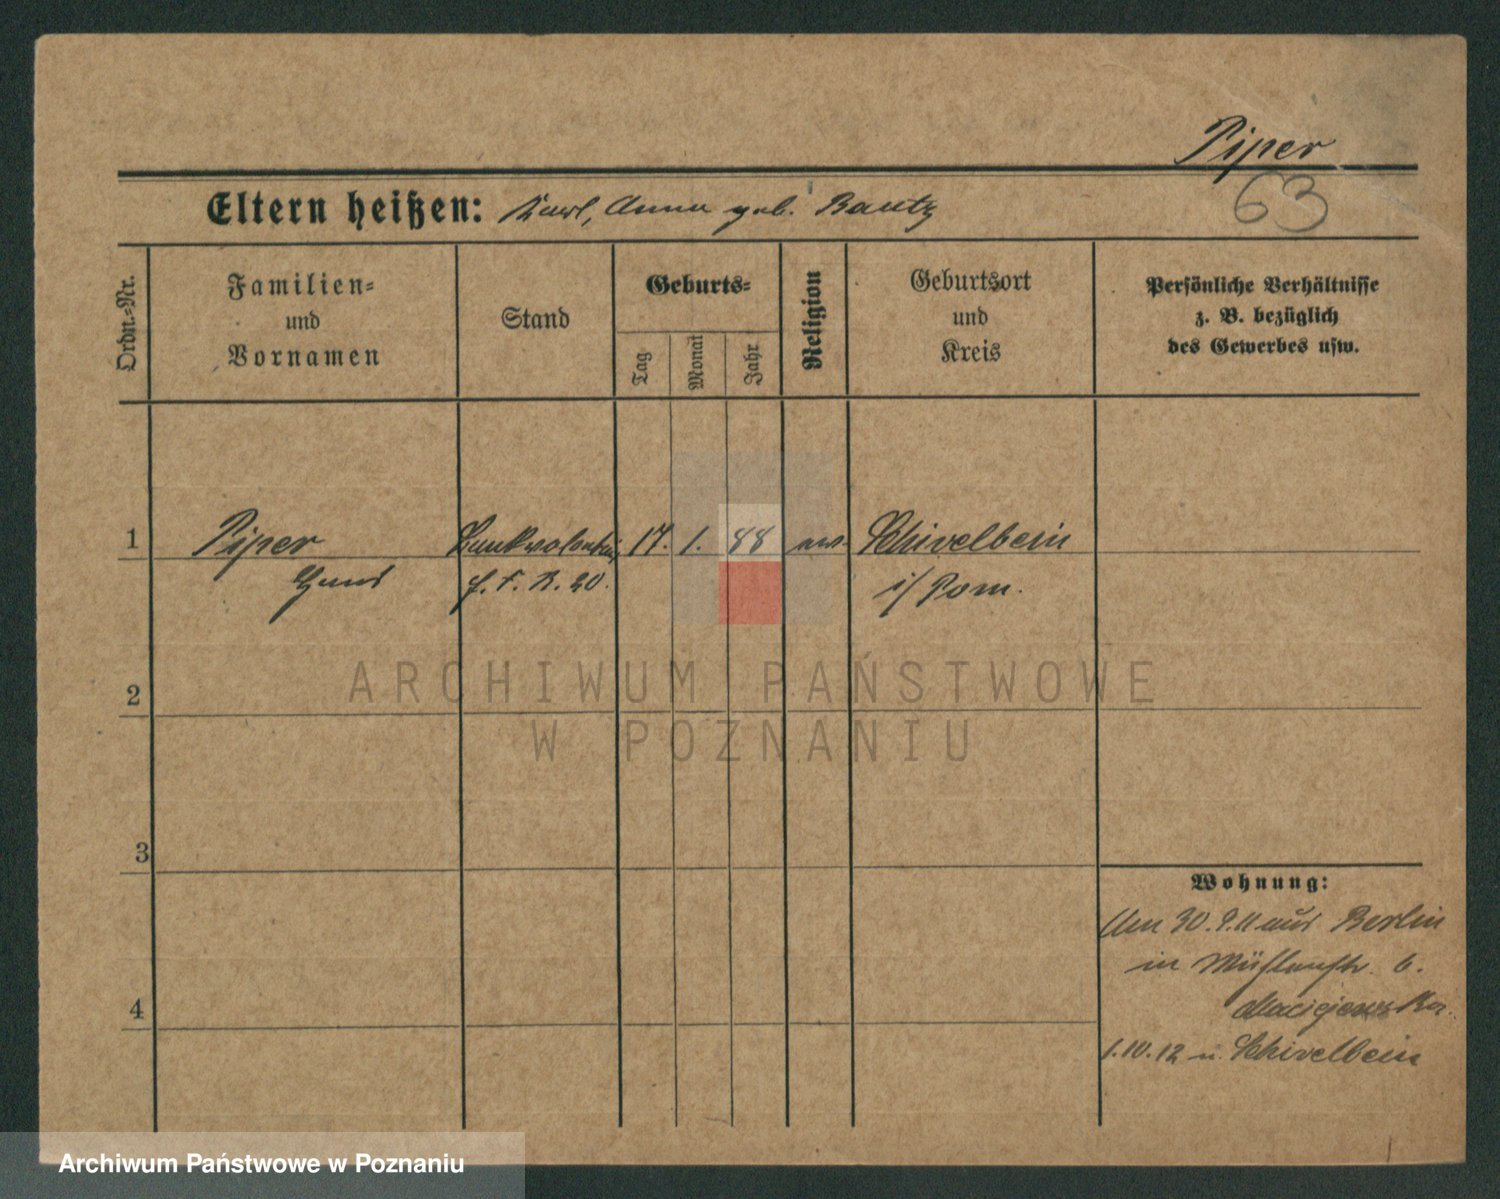 Piper
63
Eltern heißen: Karl, Anna geb. Bautz
Ordn.-Nr.
Familien-
und
Vornamen
Stand
Geburts-
Tag
Monat
Jahr
Religion
Geburtsort
und
Kreis
Persönliche Verhältnisse
z. B. bezüglich
des Gewerbes usw.
1
Piper
17. 1. 88
ev.
Schivelbein
Hans
F. R. 20.
i/ Pom.
ARCHIWUM PAŃSTWOWE
W POZNANIU
2
3
4
Wohnung:
Am 30. 9. 11 aus Berlin
in Mühlenstr. 6.
1.10.12 n. Schivelbein
Archiwum Państwowe w Poznaniu